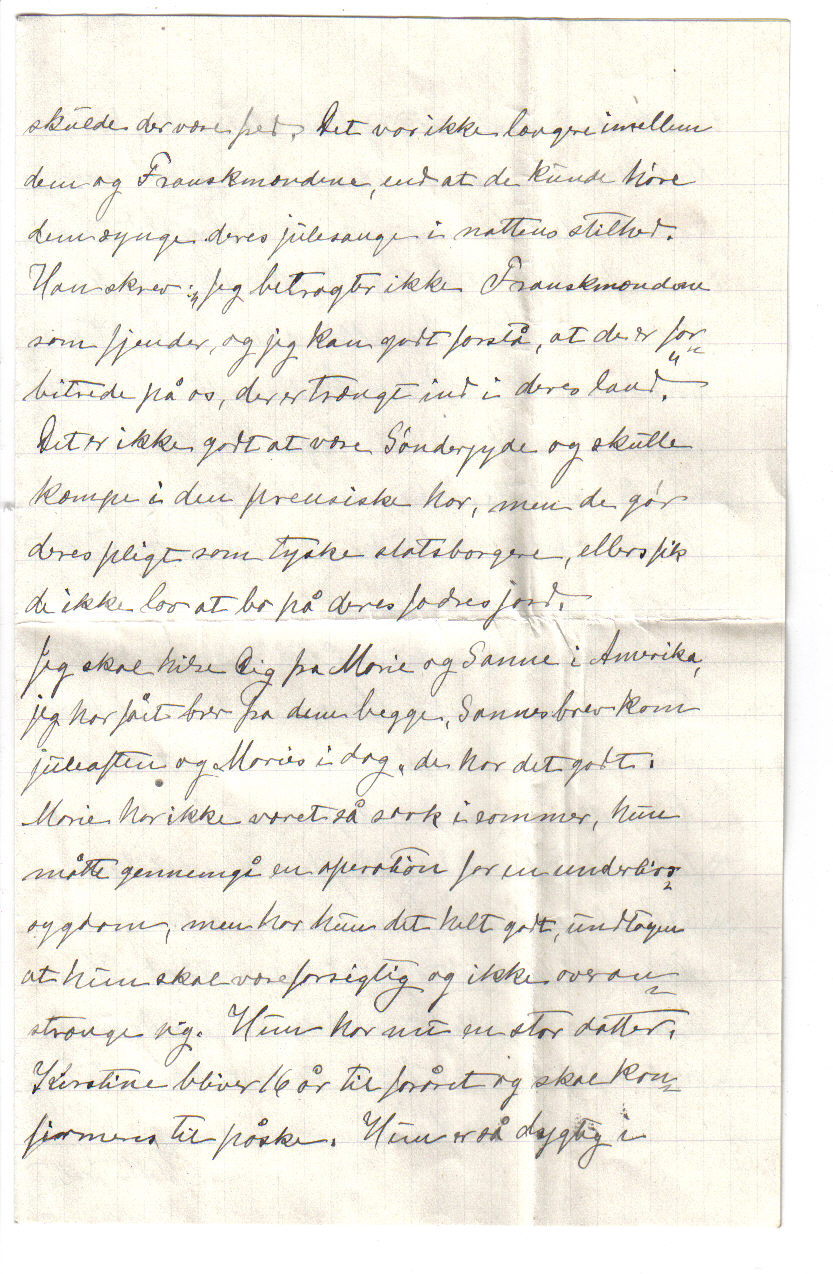 skulde der være fred. Det var ikke længere imellem
dem og Franskmændene, end at de kunde høre
dem synge deres julesange i nattens stilhed.
Han skrev: „Jeg betragter ikke Franskmændene
som fjender, og jeg kan godt forstå, at de er for-
bitrede på os, der er trængt ind i deres land.“
Det er ikke godt at være Sønderjyde og skulle
kæmpe i den preusiske hær, men de gør
deres pligt som tyske statsborgere, ellers fik
de ikke lov at bo på deres fædres jord.
Jeg skal hilse Dig fra Marie og Sanne i Amerika,
jeg har fået brev fra dem begge, Sannes brev kom
juleaften og Maries i dag, de har det godt.
Marie har ikke været så rask i sommer, hun
måtte gennemgå en operation for en underlivs-
sygdom, men har hun det helt godt, undtagen
at hun skal være forsigtig og ikke overan-
strænge sig. Hun har nu en stor datter.
Kirstine bliver 16 år til foråret og skal kon-
firmeres til påske. Hun er så dygtig i